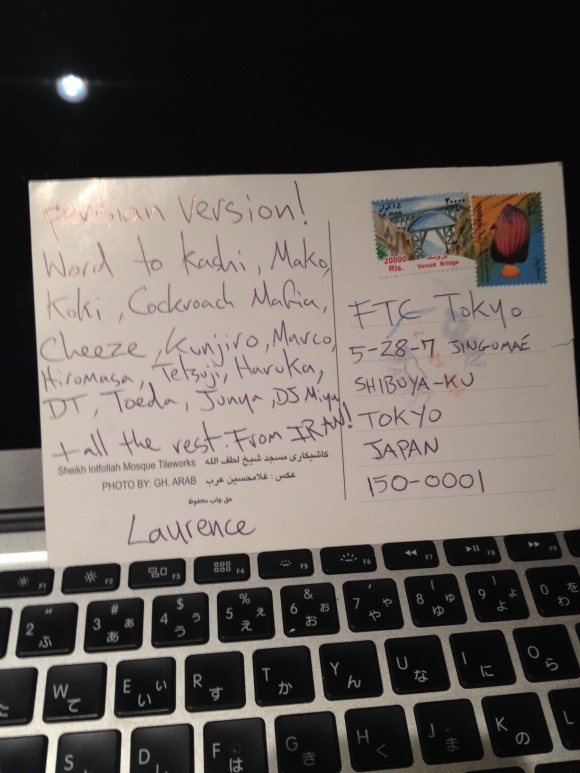 Persian Version!
Word to Kashi, Mako,
Koki, Cockroach Mafia,
Cheeze, Kunjiro, Marco,
Hiromasa, Tetsuji, Haruka,
DT, Toeda, Junya, DJ Miyu,
+ all the rest. From IRAN!
Sheikh lotfollah Mosque Tileworks کاشیکاری مسجد شیخ لطف الله
PHOTO BY: GH. ARAB عکس : غلامحسین عرب
حق چاپ محفوظ
Laurence
20000
Rls.
Veresk Bridge
FTC TOKYO
5-28-7 JINGUMAÉ
SHIBUYA-KU
TOKYO
JAPAN
150-0001
F1 F2 F3 F4 F5 F6 F7 F8 F9
" 2 ふ
# 3 ぁ あ
$ 4 ぅ う
% 5 ぇ え
& 6 ぉ お
' 7 ゃ や
( 8 ゅ ゆ
) 9 ょ よ
0 を わ
W て
E ぃ い
R す
T か
Y ん
U な
I に
O ら
S
D
F は
G き
H く
J ま
K の
L